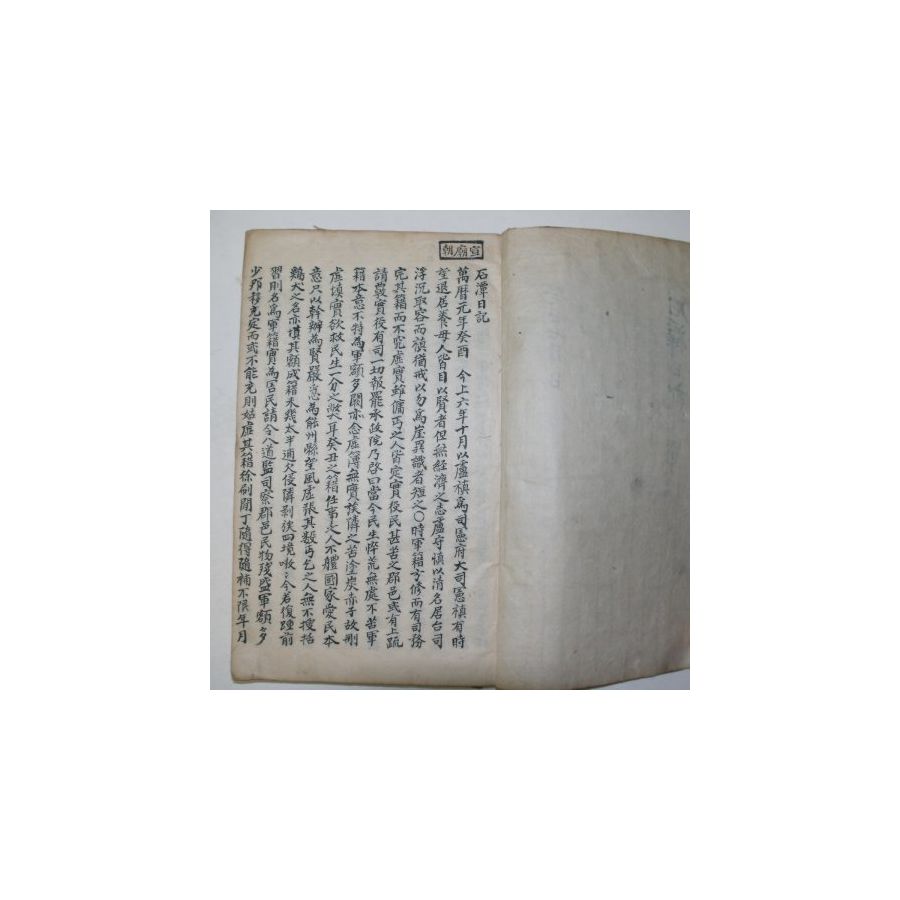 宣廟朝
石潭日記
萬曆元年癸酉 今上六年十月以盧禛爲司憲府大司憲禛有時
望退居養母人皆目以賢者但無經濟之志盧守慎以清名居台司
浮沉取容而禛猶戒以勿爲崖異識者短之〇時軍籍方修而有司務
完其籍而不究虛實雖傭丐之人皆定實役民甚苦之郡邑或有上疏
請覈實役有司一切報罷承政院乃啓曰當今民生悴荒無處不苦軍
籍本意不特為軍額多闕亦念虛簿無實族隣之苦塗炭赤子故刷
虛填實欲救民生一分之弊耳癸丑之籍任事之人不體國家愛民本
意只以幹辦為賢嚴急為能州縣望風虛張其數丐乞之人無不搜括
鷄犬之名亦填其額成籍未幾太半逋欠侵隣剝族四境嗷〻今若復踵前
習則名為軍籍實為害民請令八道監司察郡邑民物殘盛軍額多
少那移充定而或不能充則姑虛其籍徐刷閑丁隨得隨補不限年月